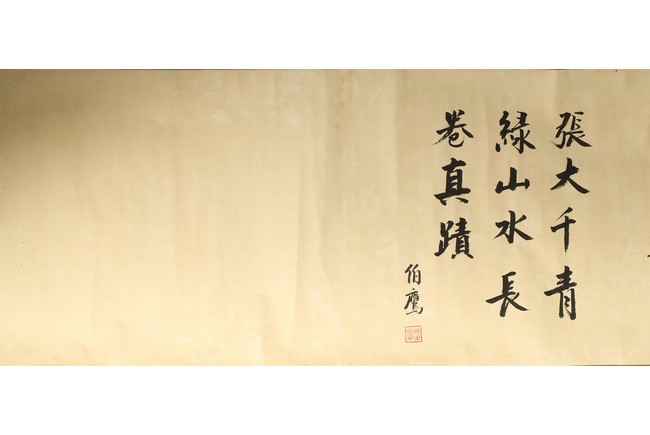 張大千青
緑山水長
卷真蹟
伯鹰